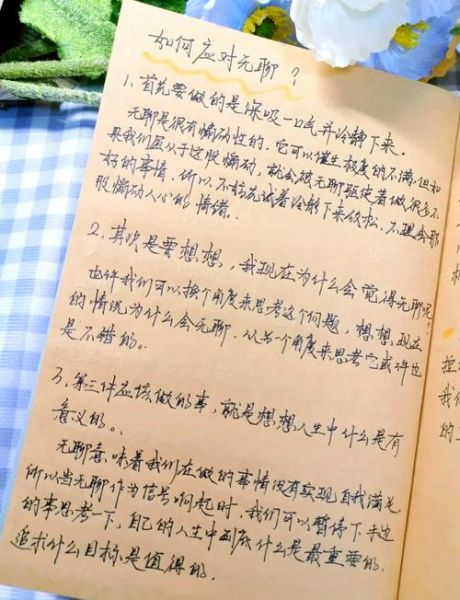 如何应对无聊？
1、首先要做的是深吸一口气并冷静下来。
无聊是很有煽动性的，它可以催生极度的不满，但如
果我们屈从于这股煽动，就会被无聊驱使着做很多不
好的事情，所以，不妨先试着冷静下来放松，不理会那
股煽动人心的情绪。
2、其次是要想想，我现在为什么会觉得无聊呢？
也许我们可以换个角度来思考这个问题，想想，现在
的情况为什么会无聊，从另一个角度来思考它或许也
是不错的。
3、第三件应该做的事，就是想想人生中什么是有
意义的。
无聊意味着我们在做的事情没有实现自我满足
所以当无聊作为信号响起时，我们可以暂停下手边
的事思考一下，自己的人生中到底什么是最重要的，
追求什么目标是值得的。
控
我们
的